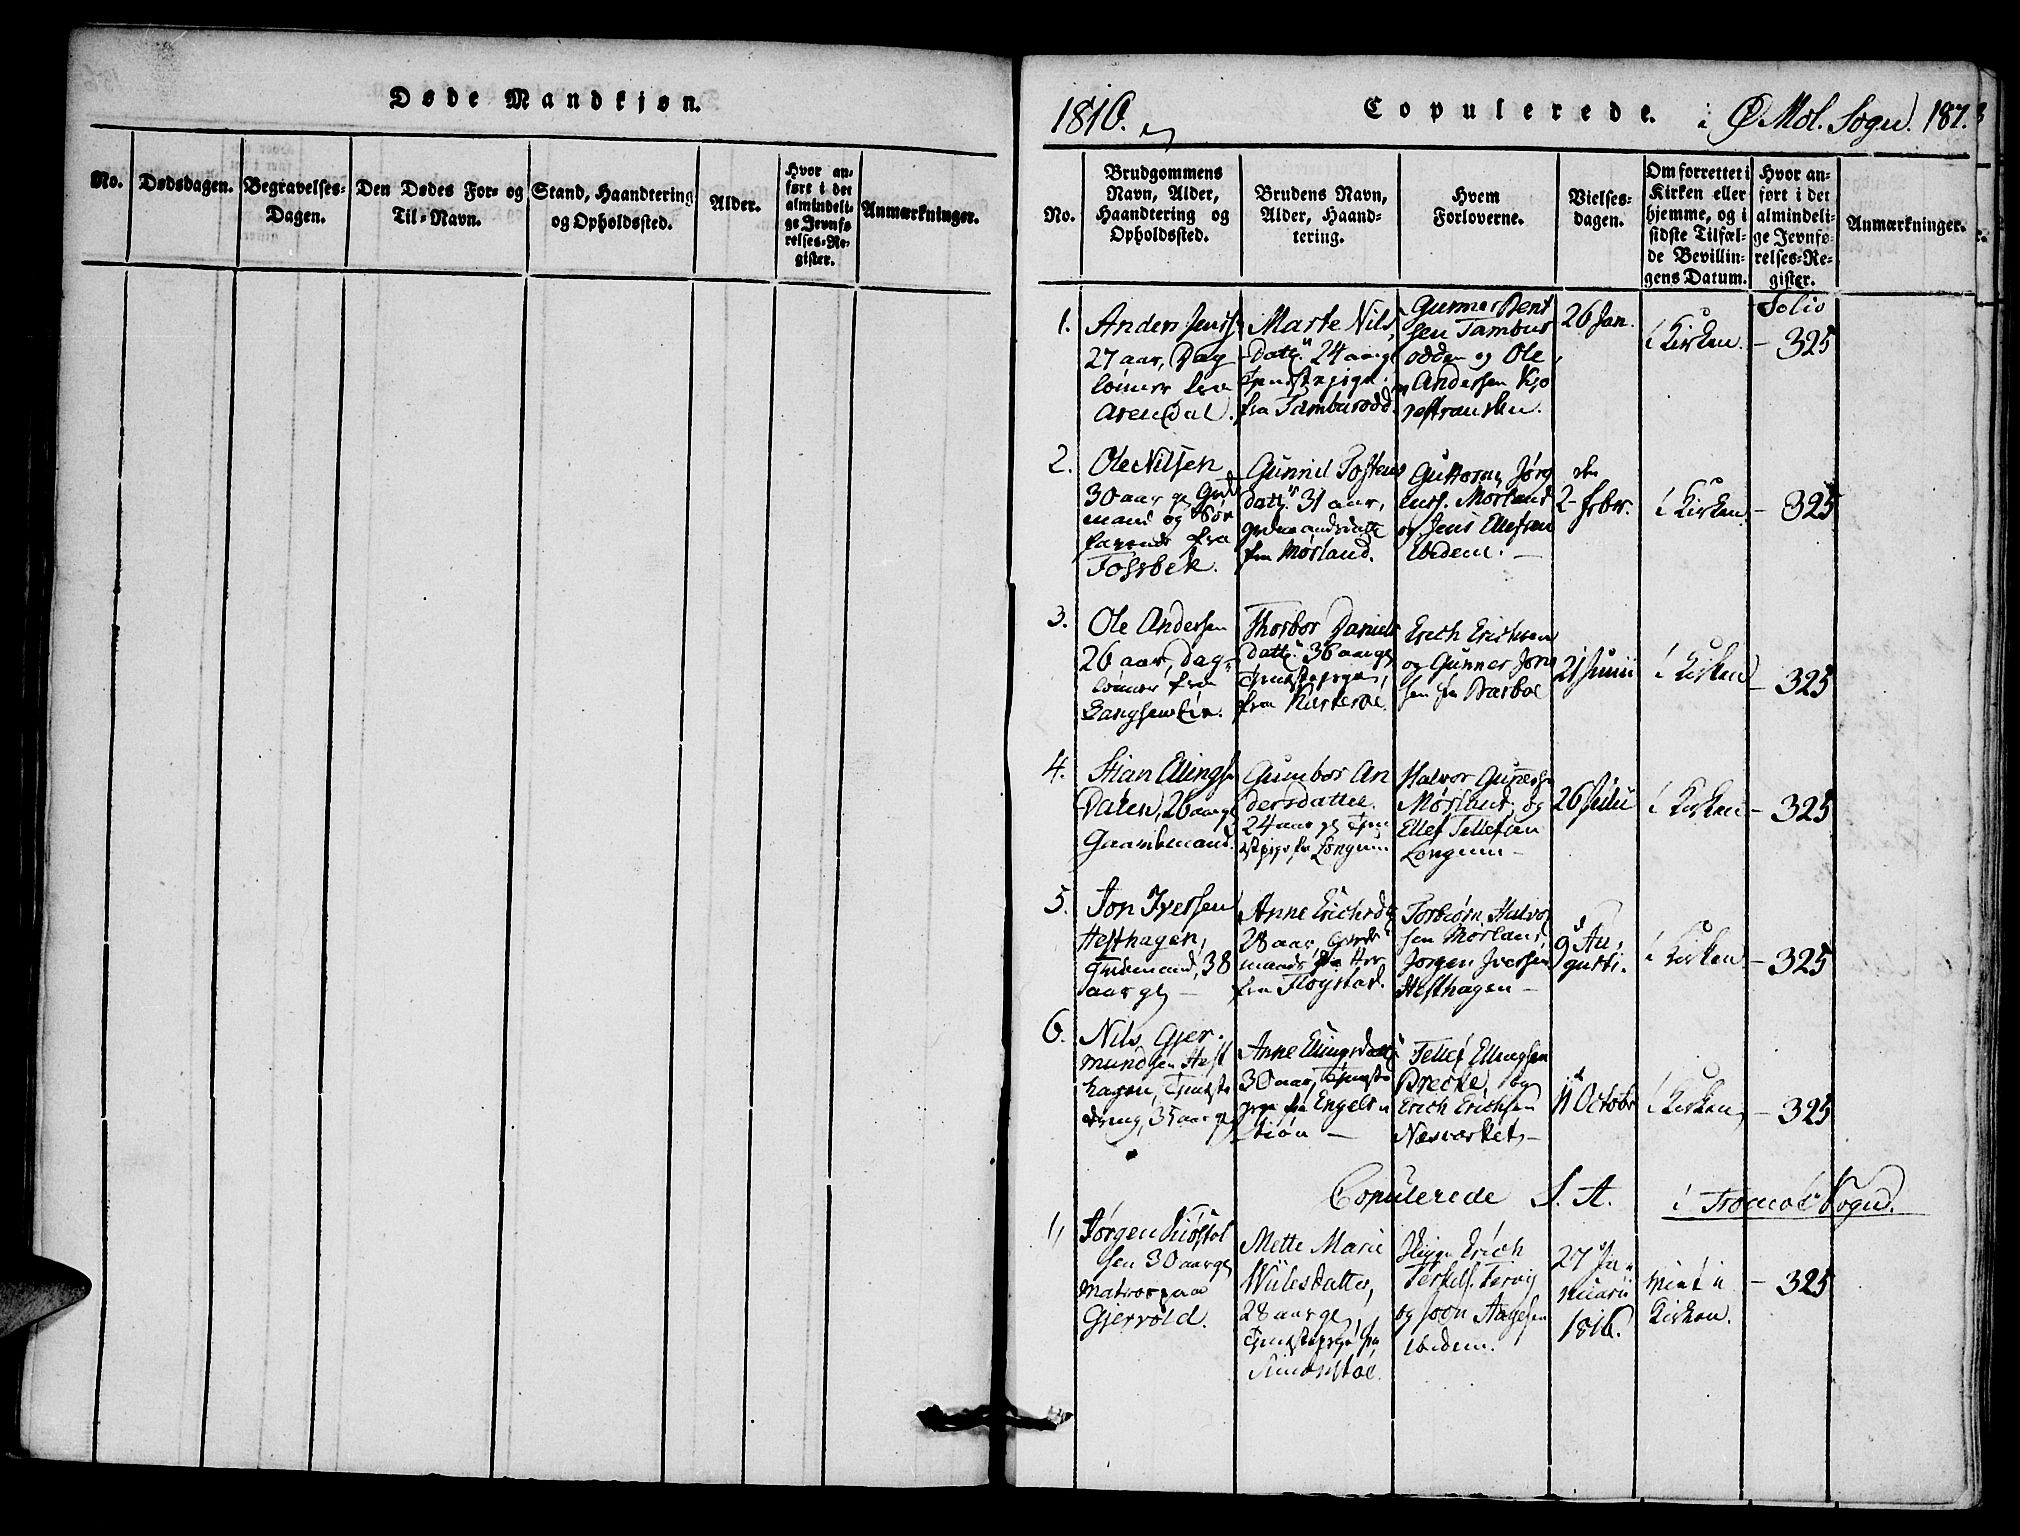 Døde Mandkjøn.
No.
Dødsdagen.
Begravelses-
Dagen.
Den Dødes For- og
Til-Navn.
Stand, Haandtering
og Opholdssted.
Alder.
Hvor an-
ført i det
almindeli-
ge Jevnfø-
relses-Re-
gister.
Anmærkninger.
1816.
Copulerede.
i Ø Mol. Sogn. 187.
No.
Brudgommens
Navn, Alder,
Haandtering og
Opholdssted.
Brudens Navn,
Alder, Haand-
tering.
Hvem
Forloverne.
Vielses-
dagen.
Om forrettet i
Kirken eller
hjemme, og i
sidste Tilfæl-
de Bevillin-
gens Datum.
Hvor an-
ført i det
almindeli-
ge Jevnfø-
relses-Re-
gister.
Anmærkninger.
1.
Anders Jenss
27 aar, Dag
løiner fra
Arendal.
Marte Nils
Datt. 24 aar
Tjenstepige
fra Tamburodd.
Gunner Bent
sen Tambur
odden og Ole
Andersen Kjo
26 Jan.
i Kirken.
Folio
- 325
2.
Ole Nilsen
30 aar g. Grd
mand og Sør
farende fra
Fossbek.
Gunnil Tosten
datt. 31 aar,
grdmandsdatt
fra Mørland.
Guttorm Jørg
ens. Mørland
og Jens Ellefsen
ibidem. -
den
2- Febr.
i Kirken
- 325
3.
Ole Andersen
26 aar, Dag-
løiner fra
Langsenkin.
Thorbor Daniels
datt. 36 aar g
Tjenstepige,
fra
Erich Erichsen
og Gunner Jørn
sen fra Barboe
21 Junii
i Kirken
- 325
4.
Stian Ellings
Dalen, 26 aar g
Gaardmand.
Gunbor An
dersdatter
24 aar g. Tjen
stpige fra Longum
Halvor Gunders
Mørland, og
Ellef Tellefsen
Longum -
26 Julii
i Kirken
- 325
5.
Jon Iversen
Hesthagen,
Grdmand, 38
aar g -
Anne Erichsdtt
28 aar, Grd
mands
fra Fløystad.
Torbiørn Halvor
sen Mørland,
Jørgen Iversen
Hesthagen -
9 Au-
gusti.
i Kirken
- 325
6.
Nils Gjer-
mundsen Hest
hagen, Tjenste
dreng, 35 aar g
Anne Ellingsdatt
30 aar, Tjenste
pige fra Engels
Tellef Ellingsen
Brecke, og
Erich Erichsen
Næsværket, -
11 Octobr
i Kirken
- 325
Copulerede S. A. i Tromøe Sogn.
1,
Jørgen Kiøstol
sen 30 aar g
Matros paa
Gjervold.
Mette Marie
Willesdatter,
28 aar g,
Tjenstepige fra
Simonstøe.
Erich
Terkels. Tervig
og Joen Aagesen
ibidem.
27 Ja-
nuarii
1816.
viet i
Kirken.
- 325